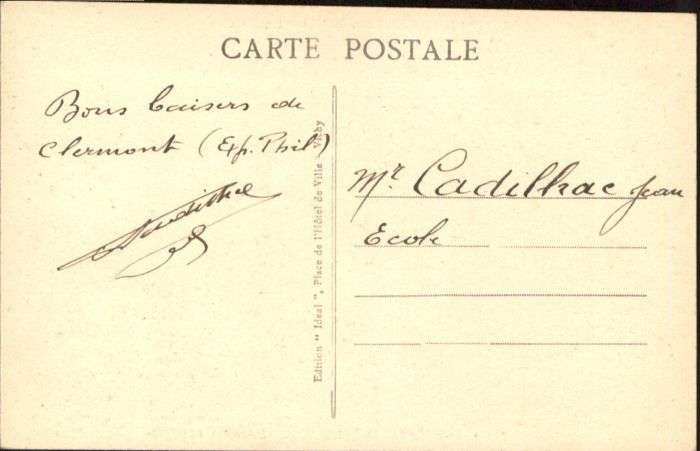 CARTE POSTALE
Bons baisers de
Clermont (Exp. Phil)
Edition " Idéal ", Place de l'Hôtel de Ville - Vichy
Mr. Cadilhac Jean
Ecole